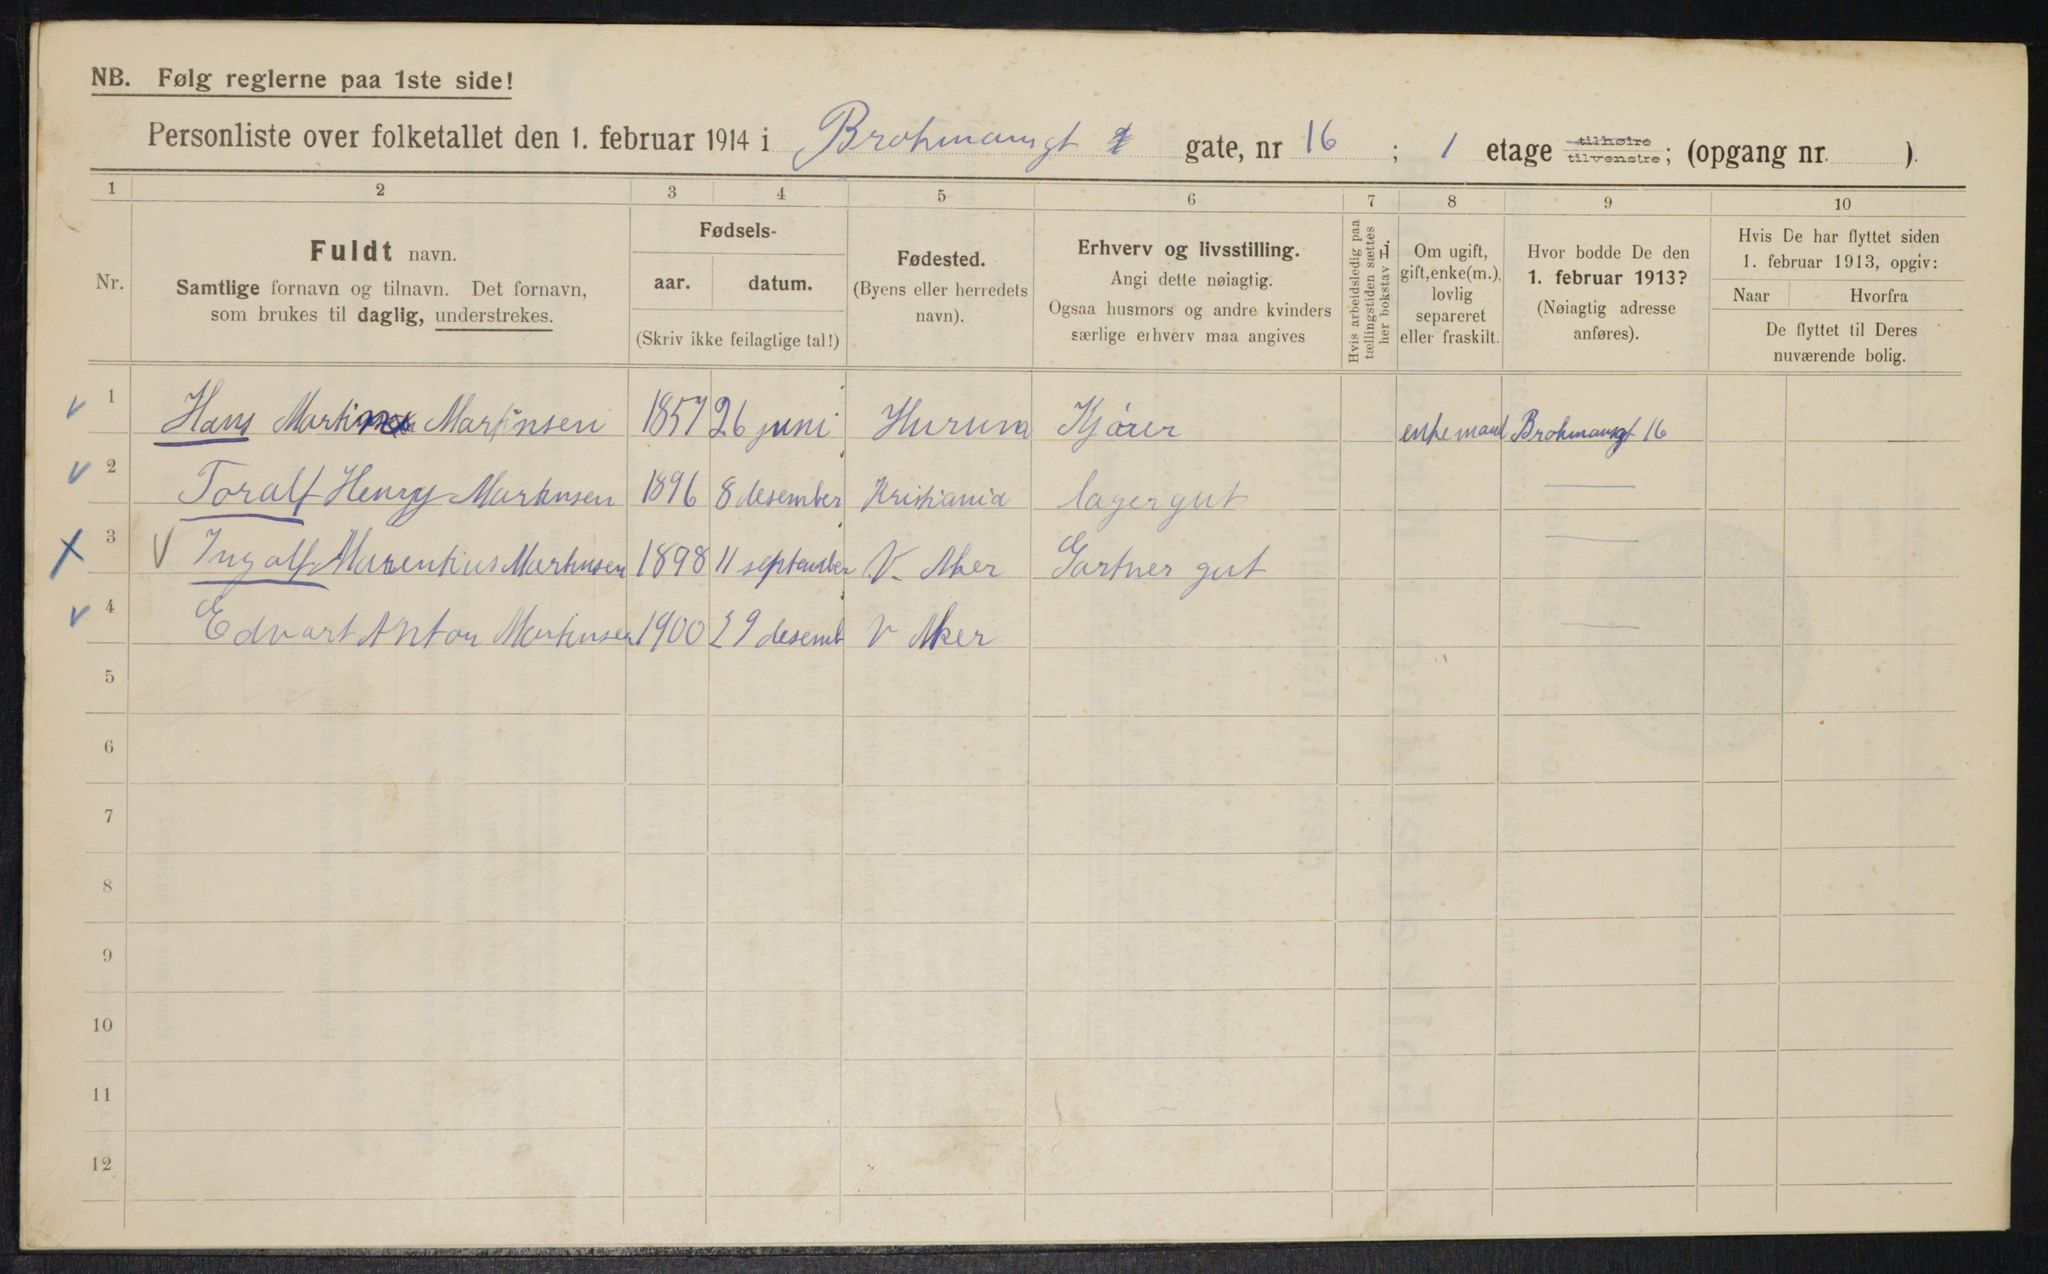 NB. Følg reglerne paa 1ste side!
Personliste over folketallet den 1. februar 1914 i Brohmansgt gate, nr 16 ; 1 etage tilhøire tilvenstre; (opgang nr. ).
1 2 3 4 5 6 7 8 9 10
Nr.
Fuldt navn.
Samtlige fornavn og tilnavn. Det fornavn,
som brukes til daglig, understrekes.
Fødsels-
aar. datum.
(Skriv ikke feilagtige tal!)
Fødested.
(Byens eller herredets
navn).
Erhverv og livsstilling.
Angi dette nøiagtig.
Ogsaa husmors og andre kvinders
særlige erhverv maa angives
Hvis arbeidsledig paa
tællingstiden sættes
her bokstav L.
Om ugift,
gift, enke(m.),
lovlig
separeret
eller fraskilt.
Hvor bodde De den
1. februar 1913?
(Nøiagtig adresse
anføres).
Hvis De har flyttet siden
1. februar 1913, opgiv:
Naar Hvorfra
De flyttet til Deres
nuværende bolig.
1 Hans Martin Martinsen 1857 26 juni Hurum Kjører enkemand Brohmansgt 16
2 Toralf Henry Martinsen 1896 8 desember Kristiania lagergut —
3 Ingolf Marentius Martinsen 1898 11 september V. Aker Gartner gut —
4 Edvart Anton Martinsen 1900 29 desemb V Aker —
5
6
7
8
9
10
11
12